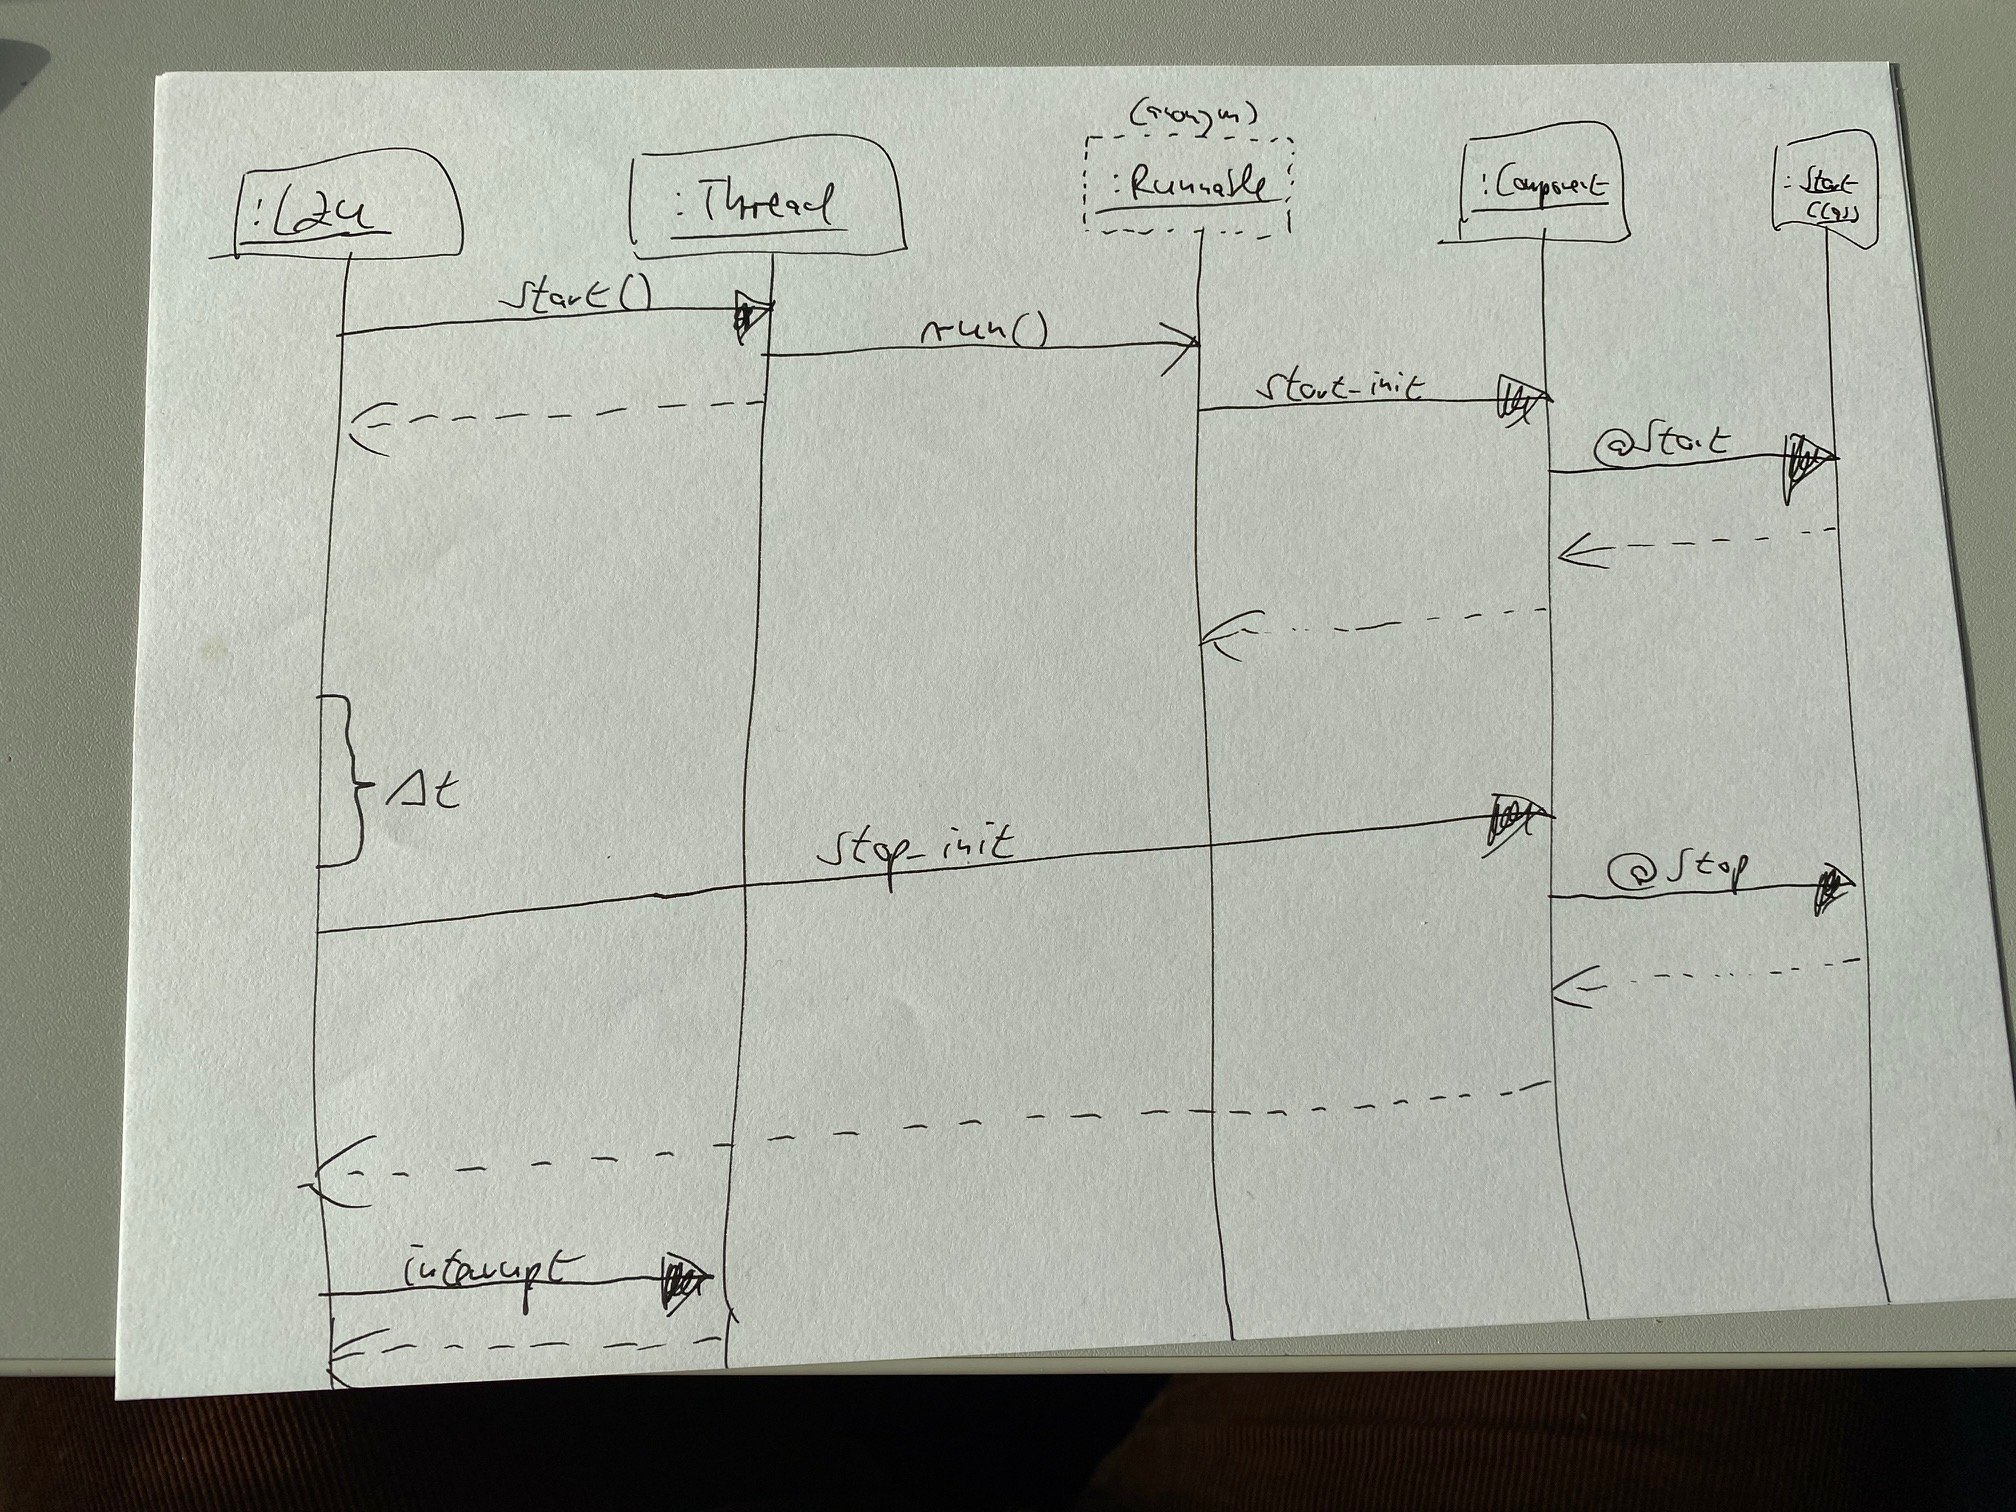 (anonym)
:LZU
:Thread
:Runnable
:Component
:Start
Class
start()
run()
start_init
@Start
Δt
stop_init
@Stop
interrupt